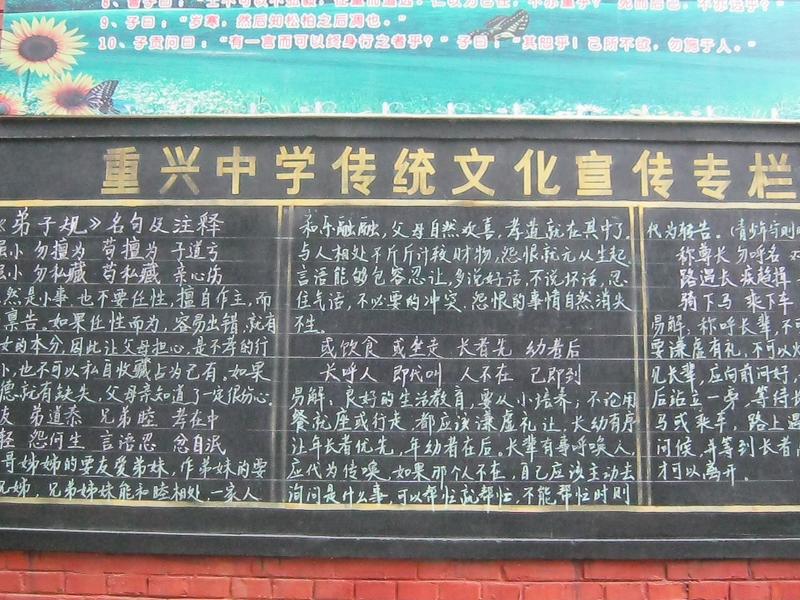 8、曾子曰："士不可以不弘毅，任重而道远。仁以为己任，不亦重乎？死而后已，不亦远乎？"
9、子曰："岁寒，然后知松柏之后凋也。"
10、子贡问曰："有一言而可以终身行之者乎？"子曰："其恕乎！己所不欲，勿施于人。"
重兴中学传统文化宣传专栏
《弟子规》名句及注释
虽小 勿擅为 苟擅为 子道亏
虽小 勿私藏 苟私藏 亲心伤
然是小事，也不要任性，擅自作主，而
禀告。如果任性而为，容易出错，就有
女的本分，因此让父母担心，是不孝的行
小，也不可以私自收藏占为己有。如果
德就有缺失，父母亲知道了一定很伤心。
友 弟道恭 兄弟睦 孝在中
轻 怨何生 言语忍 忿自泯
哥姊姊的要友爱弟妹，作弟妹的要
兄姊，兄弟姊妹能和睦相处，一家人
和乐融融，父母自然欢喜，孝道就在其中了。
与人相处不斤斤计较财物，怨恨就无从生起。
言语能够包容忍让，多说好话，不说坏话，忍
住气话，不必要的冲突、怨恨的事情自然消失
不生。
或饮食 或坐走 长者先 幼者后
长呼人 即代叫 人不在 己即到
易解、良好的生活教育，要从小培养；不论用
餐就座或行走，都应该谦虚礼让，长幼有序
让年长者优先，年幼者在后。长辈有事呼唤人，
应代为传唤，如果那个人不在，自己应该主动去
询问是什么事，可以帮忙就帮忙，不能帮忙时则
代为转告。(青少年与则
称尊长 勿呼名 对
路遇长 疾趋揖
骑下马 乘下车
易解、称呼长辈，不可
要谦虚有礼，不可以炫
见长辈，应向前问好，
后站立一旁，等待长
马或乘车，路上遇
问候，并等到长者
才可以离开。